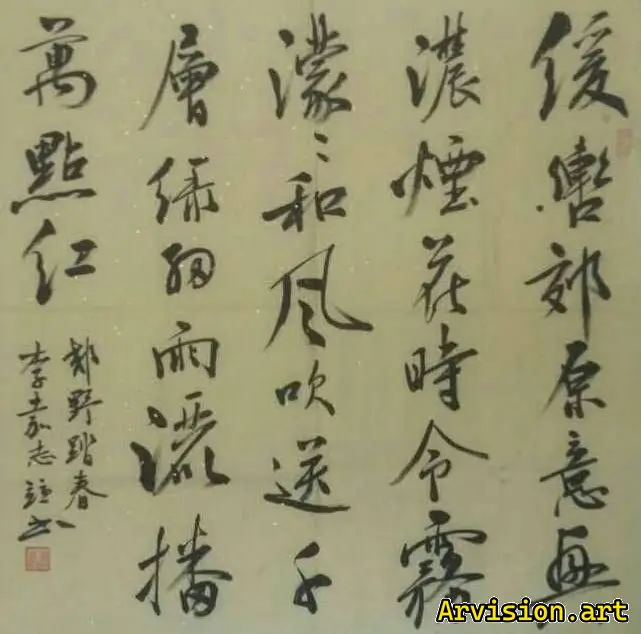 緩轡郊原意興
濃煙花時令霧
濛〻和風吹送千
層綠細雨灑播
萬點紅
郊野踏春
李嘉志書
Arvision.art